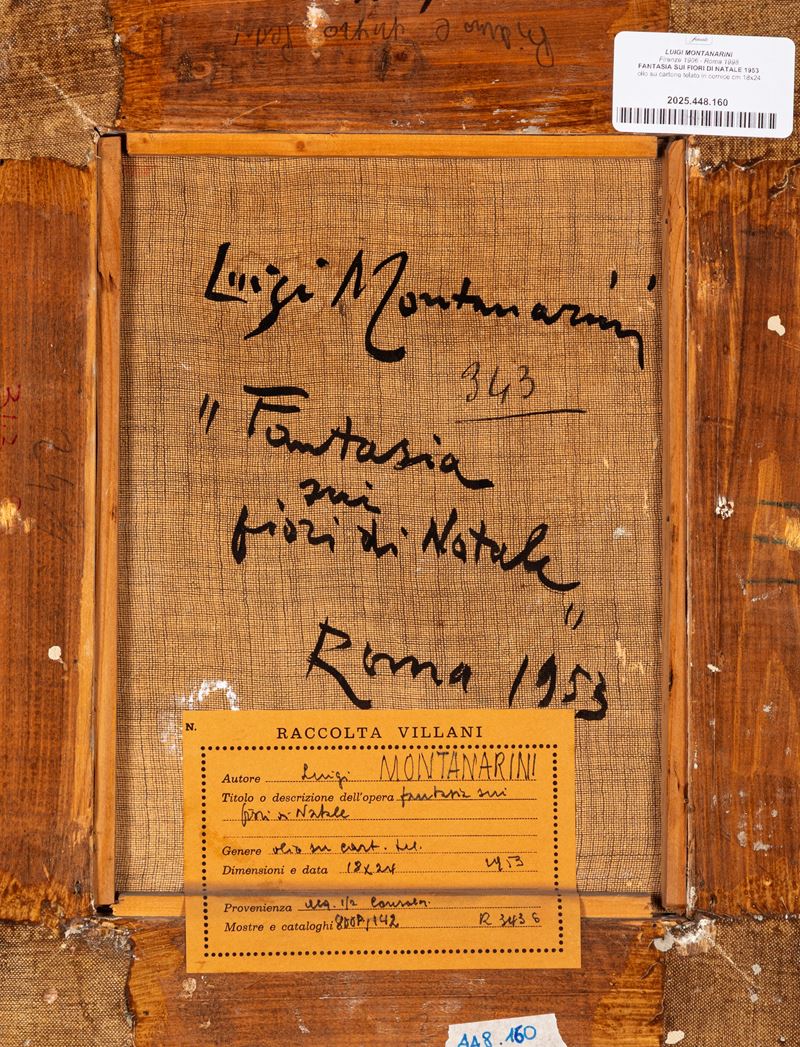 LUIGI MONTANARINI
Firenze 1906 - Roma 1998
FANTASIA SUI FIORI DI NATALE 1953
olio su cartone telato in cornice cm 18x24
2025.448.160
Luigi Montanarini
343
" Fantasia
sui
fiori di Natale
"
Roma 1953
N.
RACCOLTA VILLANI
Autore Luigi MONTANARINI
Titolo o descrizione dell'opera fantasia sui
fiori di Natale
Genere olio su cart. tel.
Dimensioni e data 18x24 1953
Provenienza
Mostre e cataloghi R 343 6
448.160